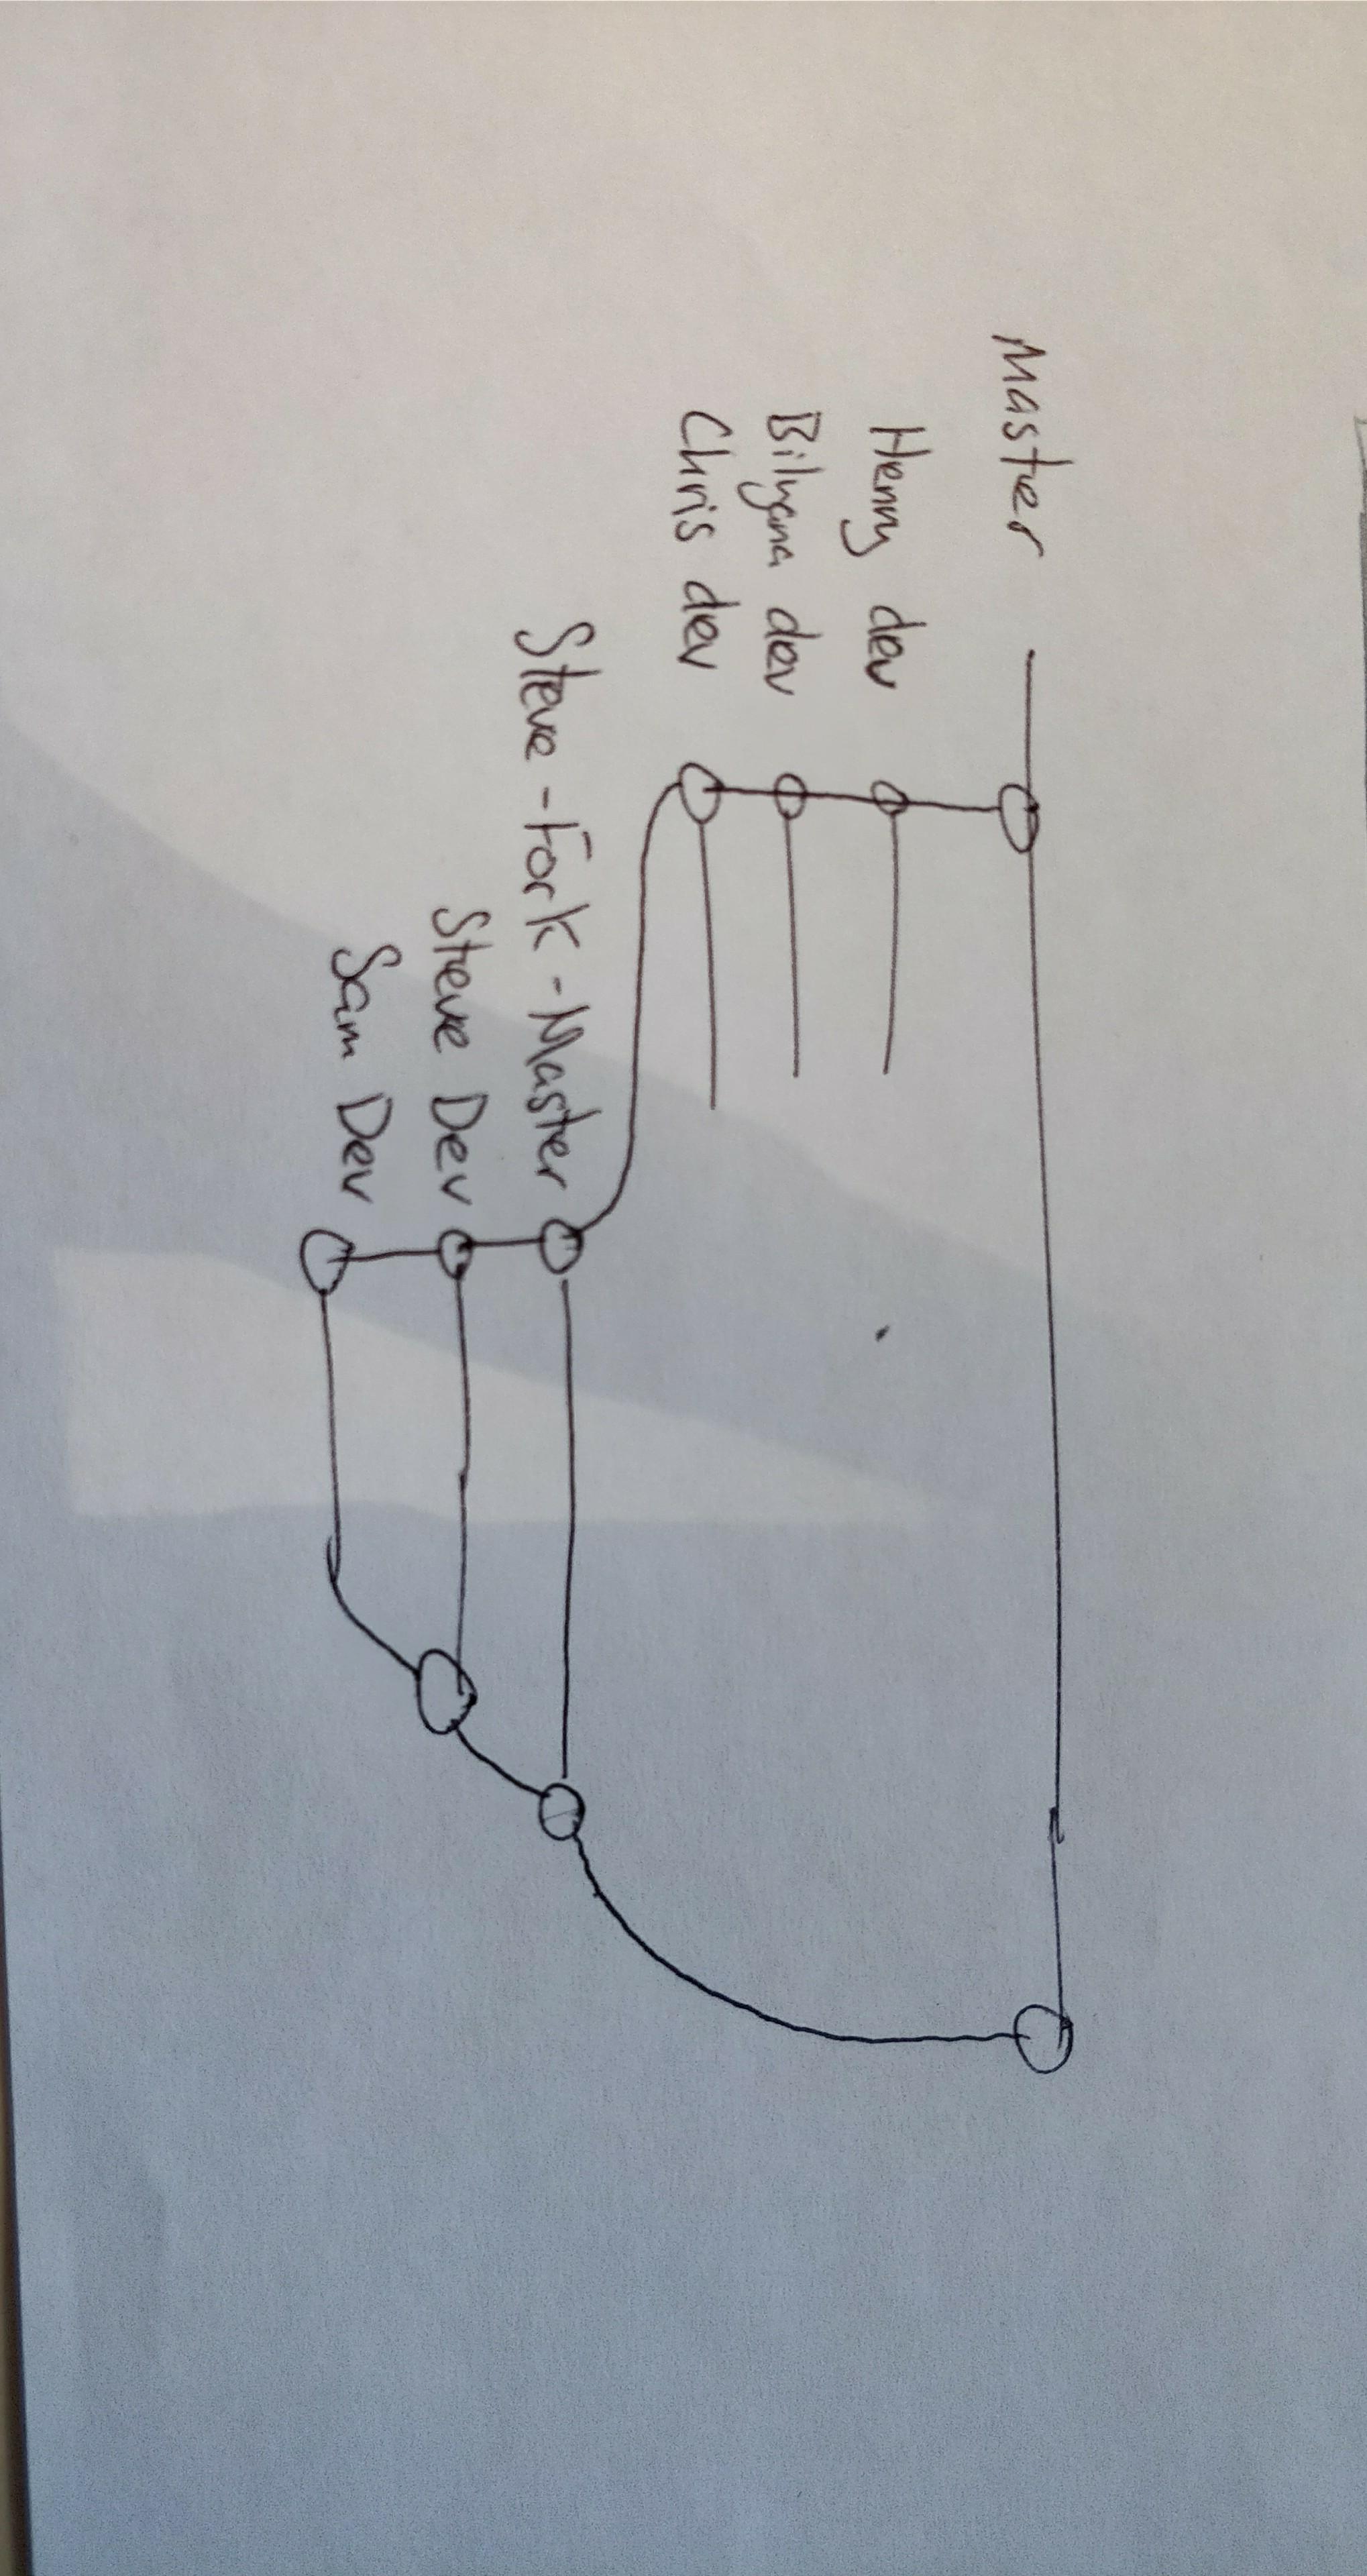 Master
Henry dev
Bilyana dev
Chris dev
Steve-Fork-Master
Steve Dev
Sam Dev